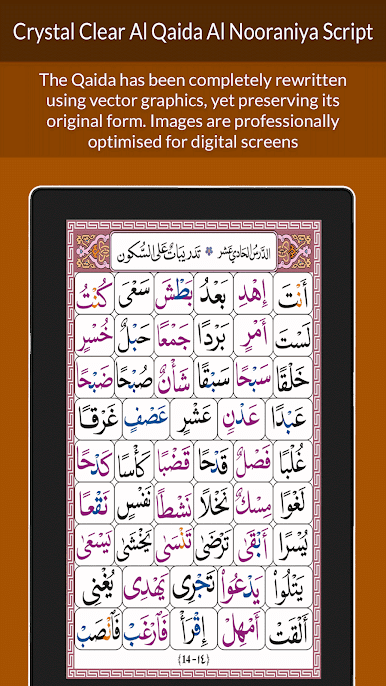 Crystal Clear Al Qaida Al Nooraniya Script
The Qaida has been completely rewritten
using vector graphics, yet preserving its
original form. Images are professionally
optimised for digital screens
الدَّرْسُ الحَادِي عَشَر * تَدْرِيبَاتٌ عَلَى السُّكُون
أَنْتَ إِهْدِ بَعْدُ بَطْشَ سَعْىَ كُنْتُ
لَسْتَ أَمْرٍ بَرْدًا جَمْعًا حَبْلٌ خُسْرٍ
خَلْقًا سَبْحًا سَبْقًا شَأْنٌ صُبْحًا ضَبْحًا
عَبْدًا عَدْنٍ عَشْرٍ عَصْفٍ غَرْقًا
غُلْبًا فَصْلٌ قَدْحًا قَضْبًا كَأْسًا كَدْحًا
لَغْوًا مِسْكٌ نَخْلًا نَشْطًا نَفْسٌ نَقْعًا
يُسْرًا أَبْقَى تَرْضَى تَنْسَى يَخْشَى يَسْعَى
يَتْلُواْ يَدْعُواْ تَجْرِى يَهْدِى يُغْنِى
أَلْقَتْ أَمْهِلْ اِقْرَأْ فَارْغَبْ فَانْصَبْ
(14-١٤)